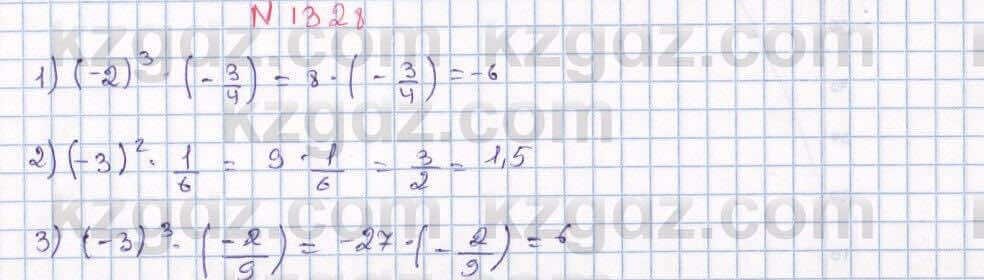 N 1328
kzgdz.com kzgdz.com
1) (-2)³ · (-3/4) = 8 · (-3/4) = -6
kzgdz.com
2) (-3)² · 1/6 = 9 · 1/6 = 3/2 = 1,5
kzgdz.com kzgdz.com
3) (-3)³ · (-2/9) = -27 · (-2/9) = 6